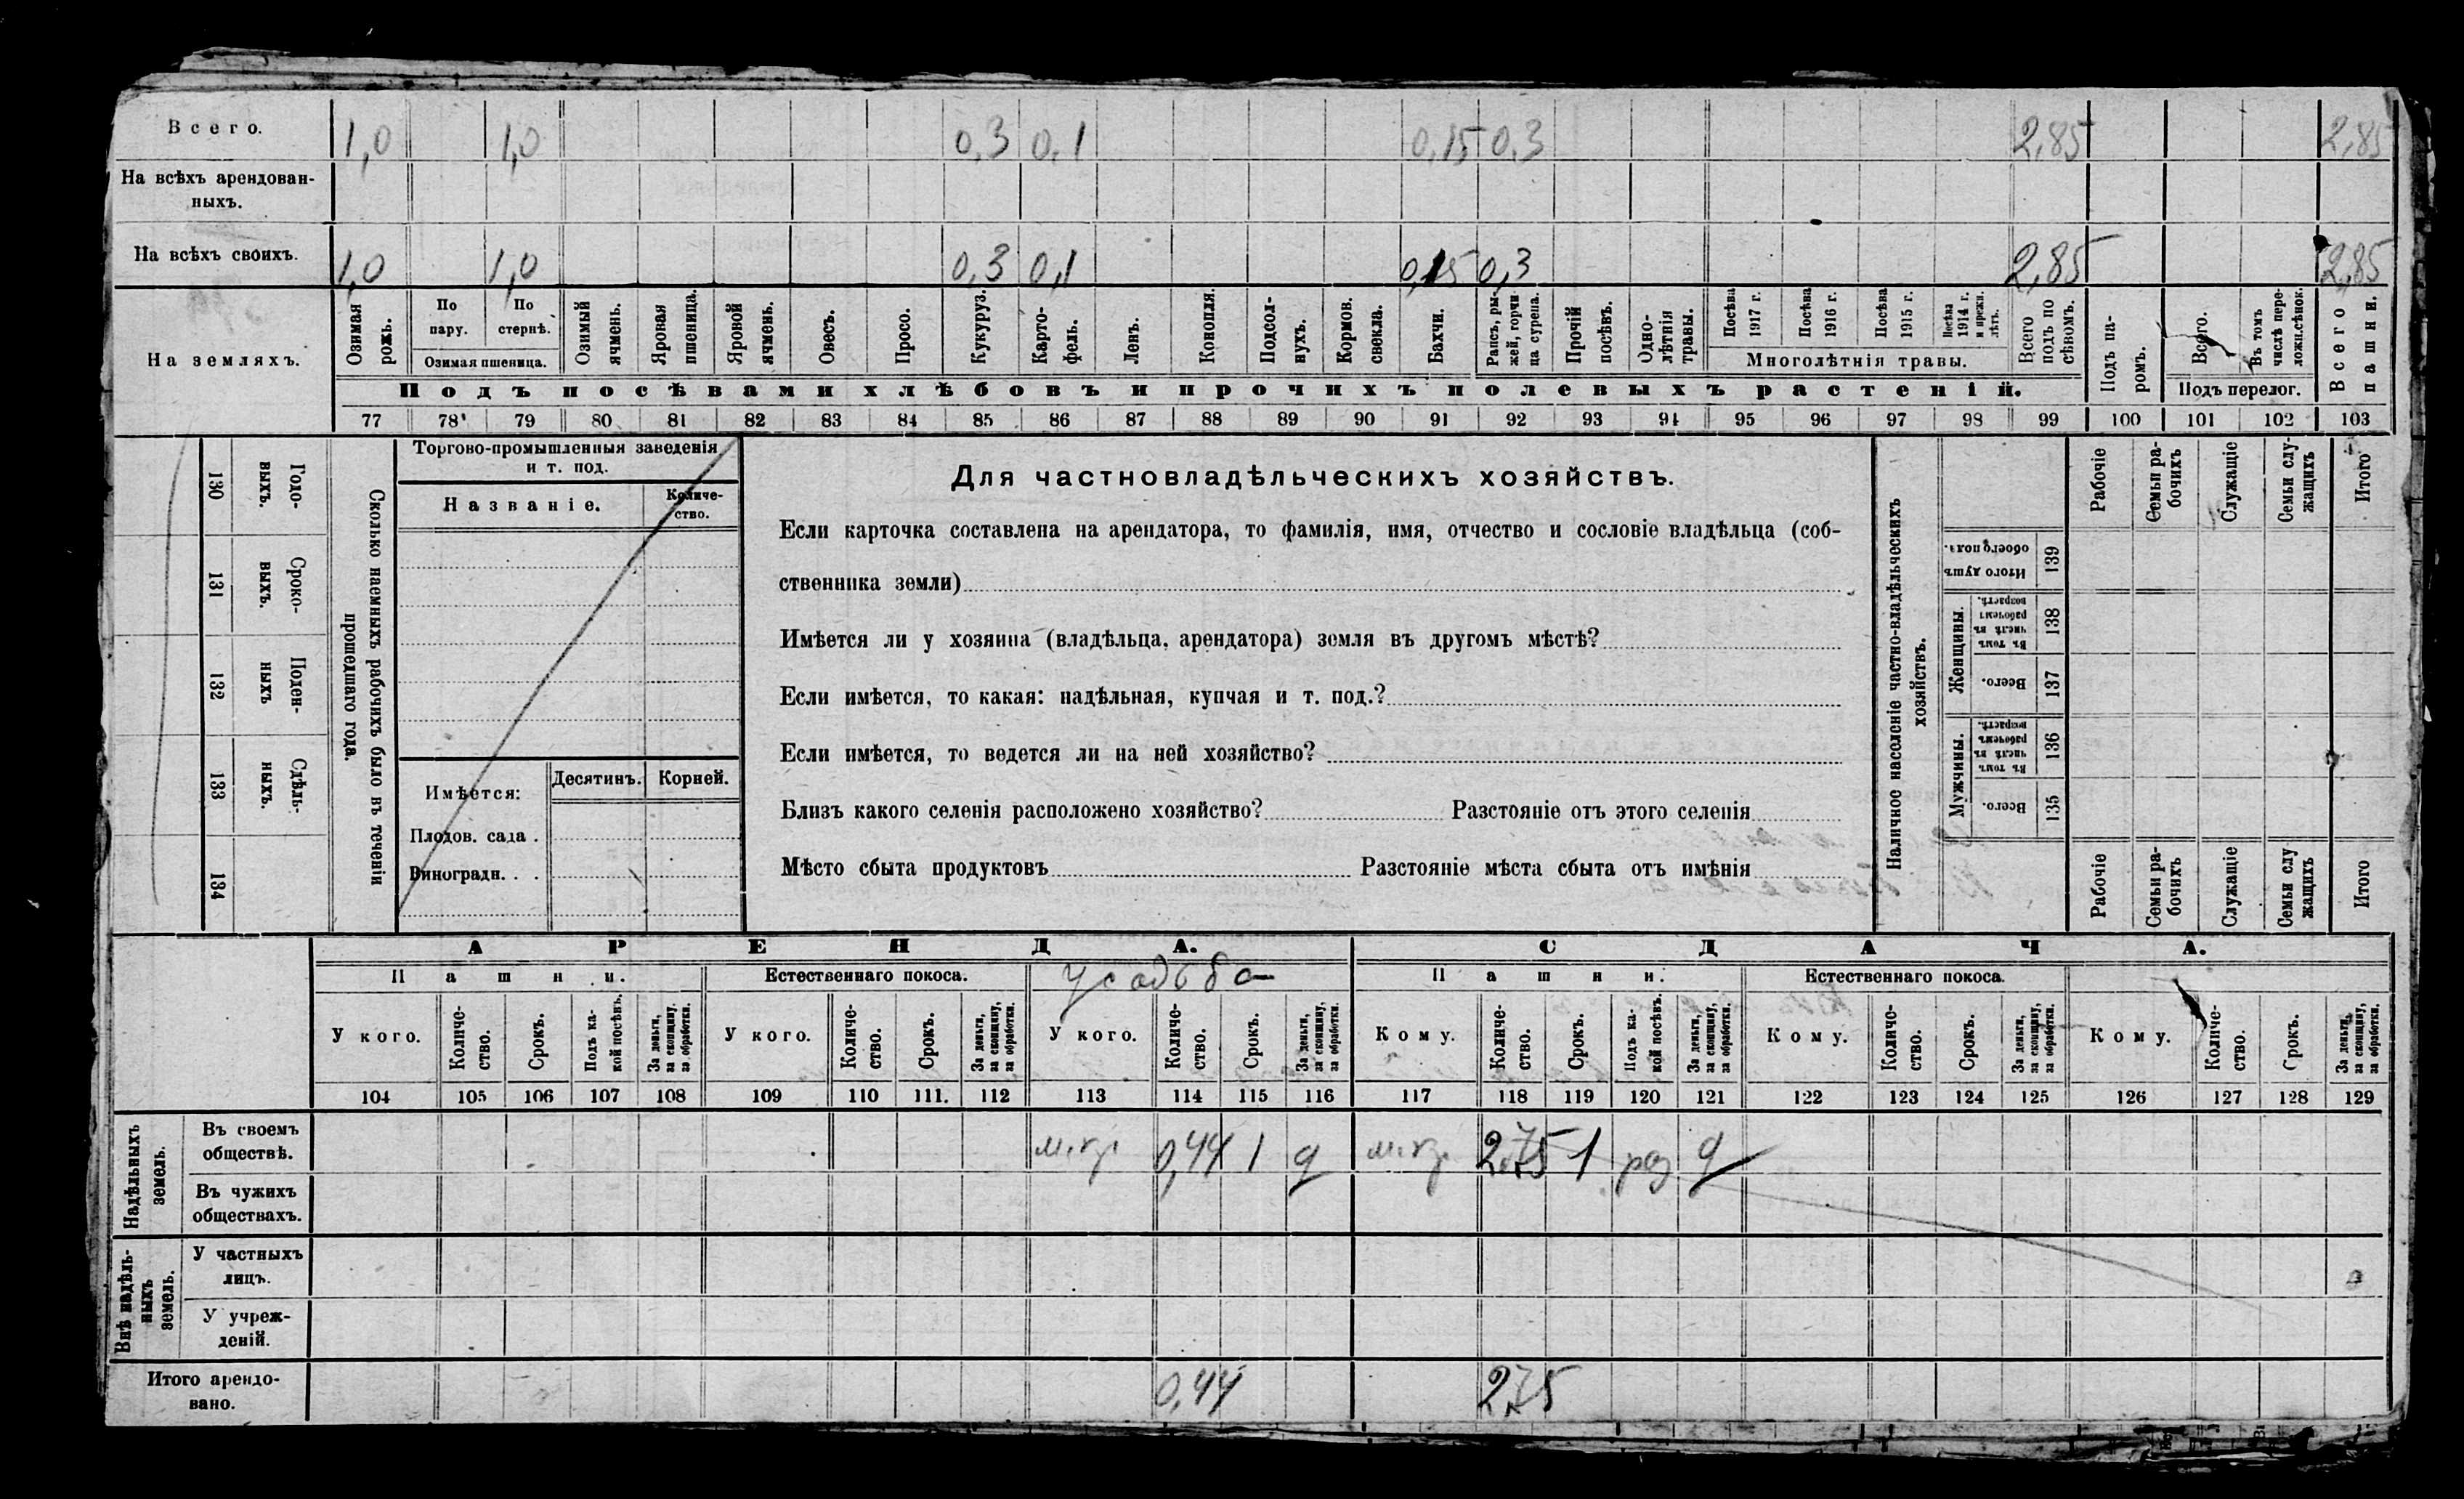 Всего. 1,0 1,0 0,3 0,1 0,15 0,3 2,85 2,85
На всѣхъ арендован-
ныхъ.
На всѣхъ своихъ. 1,0 1,0 0,3 0,1 0,15 0,3 2,85 2,85
На земляхъ.
Озимая рожь.
По пару.
По стернѣ.
Озимая пшеница.
Озимый ячмень.
Яровая пшеница.
Яровой ячмень.
Овесъ.
Просо.
Кукуруз.
Карто-
фель.
Ленъ.
Конопля.
Подсол-
нухъ.
Кормов.
свекла.
Бахчи.
Рапсъ, ры-
жей, горчи
ца сурепа.
Прочій
посѣвъ.
Одно-
лѣтнія
травы.
Посѣва
1917 г.
Посѣва
1916 г.
Посѣва
1915 г.
Посѣва
1914 г.
и прежн.
лѣтъ.
Многолѣтнія травы.
Всего
подъ по
сѣвомъ.
Подъ па-
ромъ.
Всего.
Въ томъ
числѣ пере-
ложн.сѣнок.
Подъ перелог.
Всего
пашни.
Подъ посѣвами хлѣбовъ и прочихъ полевыхъ растеній.
77 78 79 80 81 82 83 84 85 86 87 88 89 90 91 92 93 94 95 96 97 98 99 100 101 102 103
Сколько наемныхъ рабочихъ было въ теченіи
прошедшаго года.
Годо-
выхъ.
130
Сроко-
выхъ.
131
Поден-
ныхъ
132
Сдѣль-
ныхъ.
133
134
Торгово-промышленныя заведенія
и т. под.
Названіе.
Количе-
ство.
Имѣется:
Десятинъ. Корней.
Плодов. сада .
Виноградн. . .
Для частновладѣльческихъ хозяйствъ.
Если карточка составлена на арендатора, то фамилія, имя, отчество и сословіе владѣльца (соб-
ственника земли)
Имѣется ли у хозяина (владѣльца, арендатора) земля въ другомъ мѣстѣ?
Если имѣется, то какая: надѣльная, купчая и т. под.?
Если имѣется, то ведется ли на ней хозяйство?
Близъ какого селенія расположено хозяйство? Разстояніе отъ этого селенія
Мѣсто сбыта продуктовъ Разстояніе мѣста сбыта отъ имѣнія
Наличное населеніе частно-владѣльческихъ
хозяйствъ.
Рабочіе
Семьи ра-
бочихъ
Служащіе
Семьи слу-
жащихъ
Итого
Итого душъ
обоего пола.
139
Женщины.
Въ томъ
числѣ въ
рабочемъ
возрастѣ.
138
Всего.
137
Мужчины.
Въ томъ
числѣ въ
рабочемъ
возрастѣ.
136
Всего.
135
Рабочіе
Семьи ра-
бочихъ
Служащіе
Семьи слу
жащихъ
Итого
АРЕНДА. СДАЧА.
Пашни. Естественнаго покоса. усадьба Пашни. Естественнаго покоса.
У кого.
Количе-
ство.
Срокъ.
Подъ ка-
кой посѣвъ.
За деньги,
за скопщину,
за обработки.
У кого.
Количе-
ство.
Срокъ.
За деньги,
за скопщину,
за обработки.
У кого.
Количе-
ство.
Срокъ.
За деньги,
за скопщину,
за обработки.
Кому.
Количе-
ство.
Срокъ.
Подъ ка-
кой посѣвъ.
За деньги,
за скопщину,
за обработки.
Кому.
Количе-
ство.
Срокъ.
За деньги,
за скопщину,
за обработки.
Кому.
Количе-
ство.
Срокъ.
За деньги,
за скопщину,
за обработки.
104 105 106 107 108 109 110 111. 112 113 114 115 116 117 118 119 120 121 122 123 124 125 126 127 128 129
Надѣльныхъ
земель.
Въ своемъ
обществѣ.
0,44 1 д 2,75 1 д
Въ чужихъ
обществахъ.
Внѣ надѣль-
ныхъ
земель.
У частныхъ
лицъ.
У учреж-
деній.
Итого арендо-
вано.
0,44 2,75